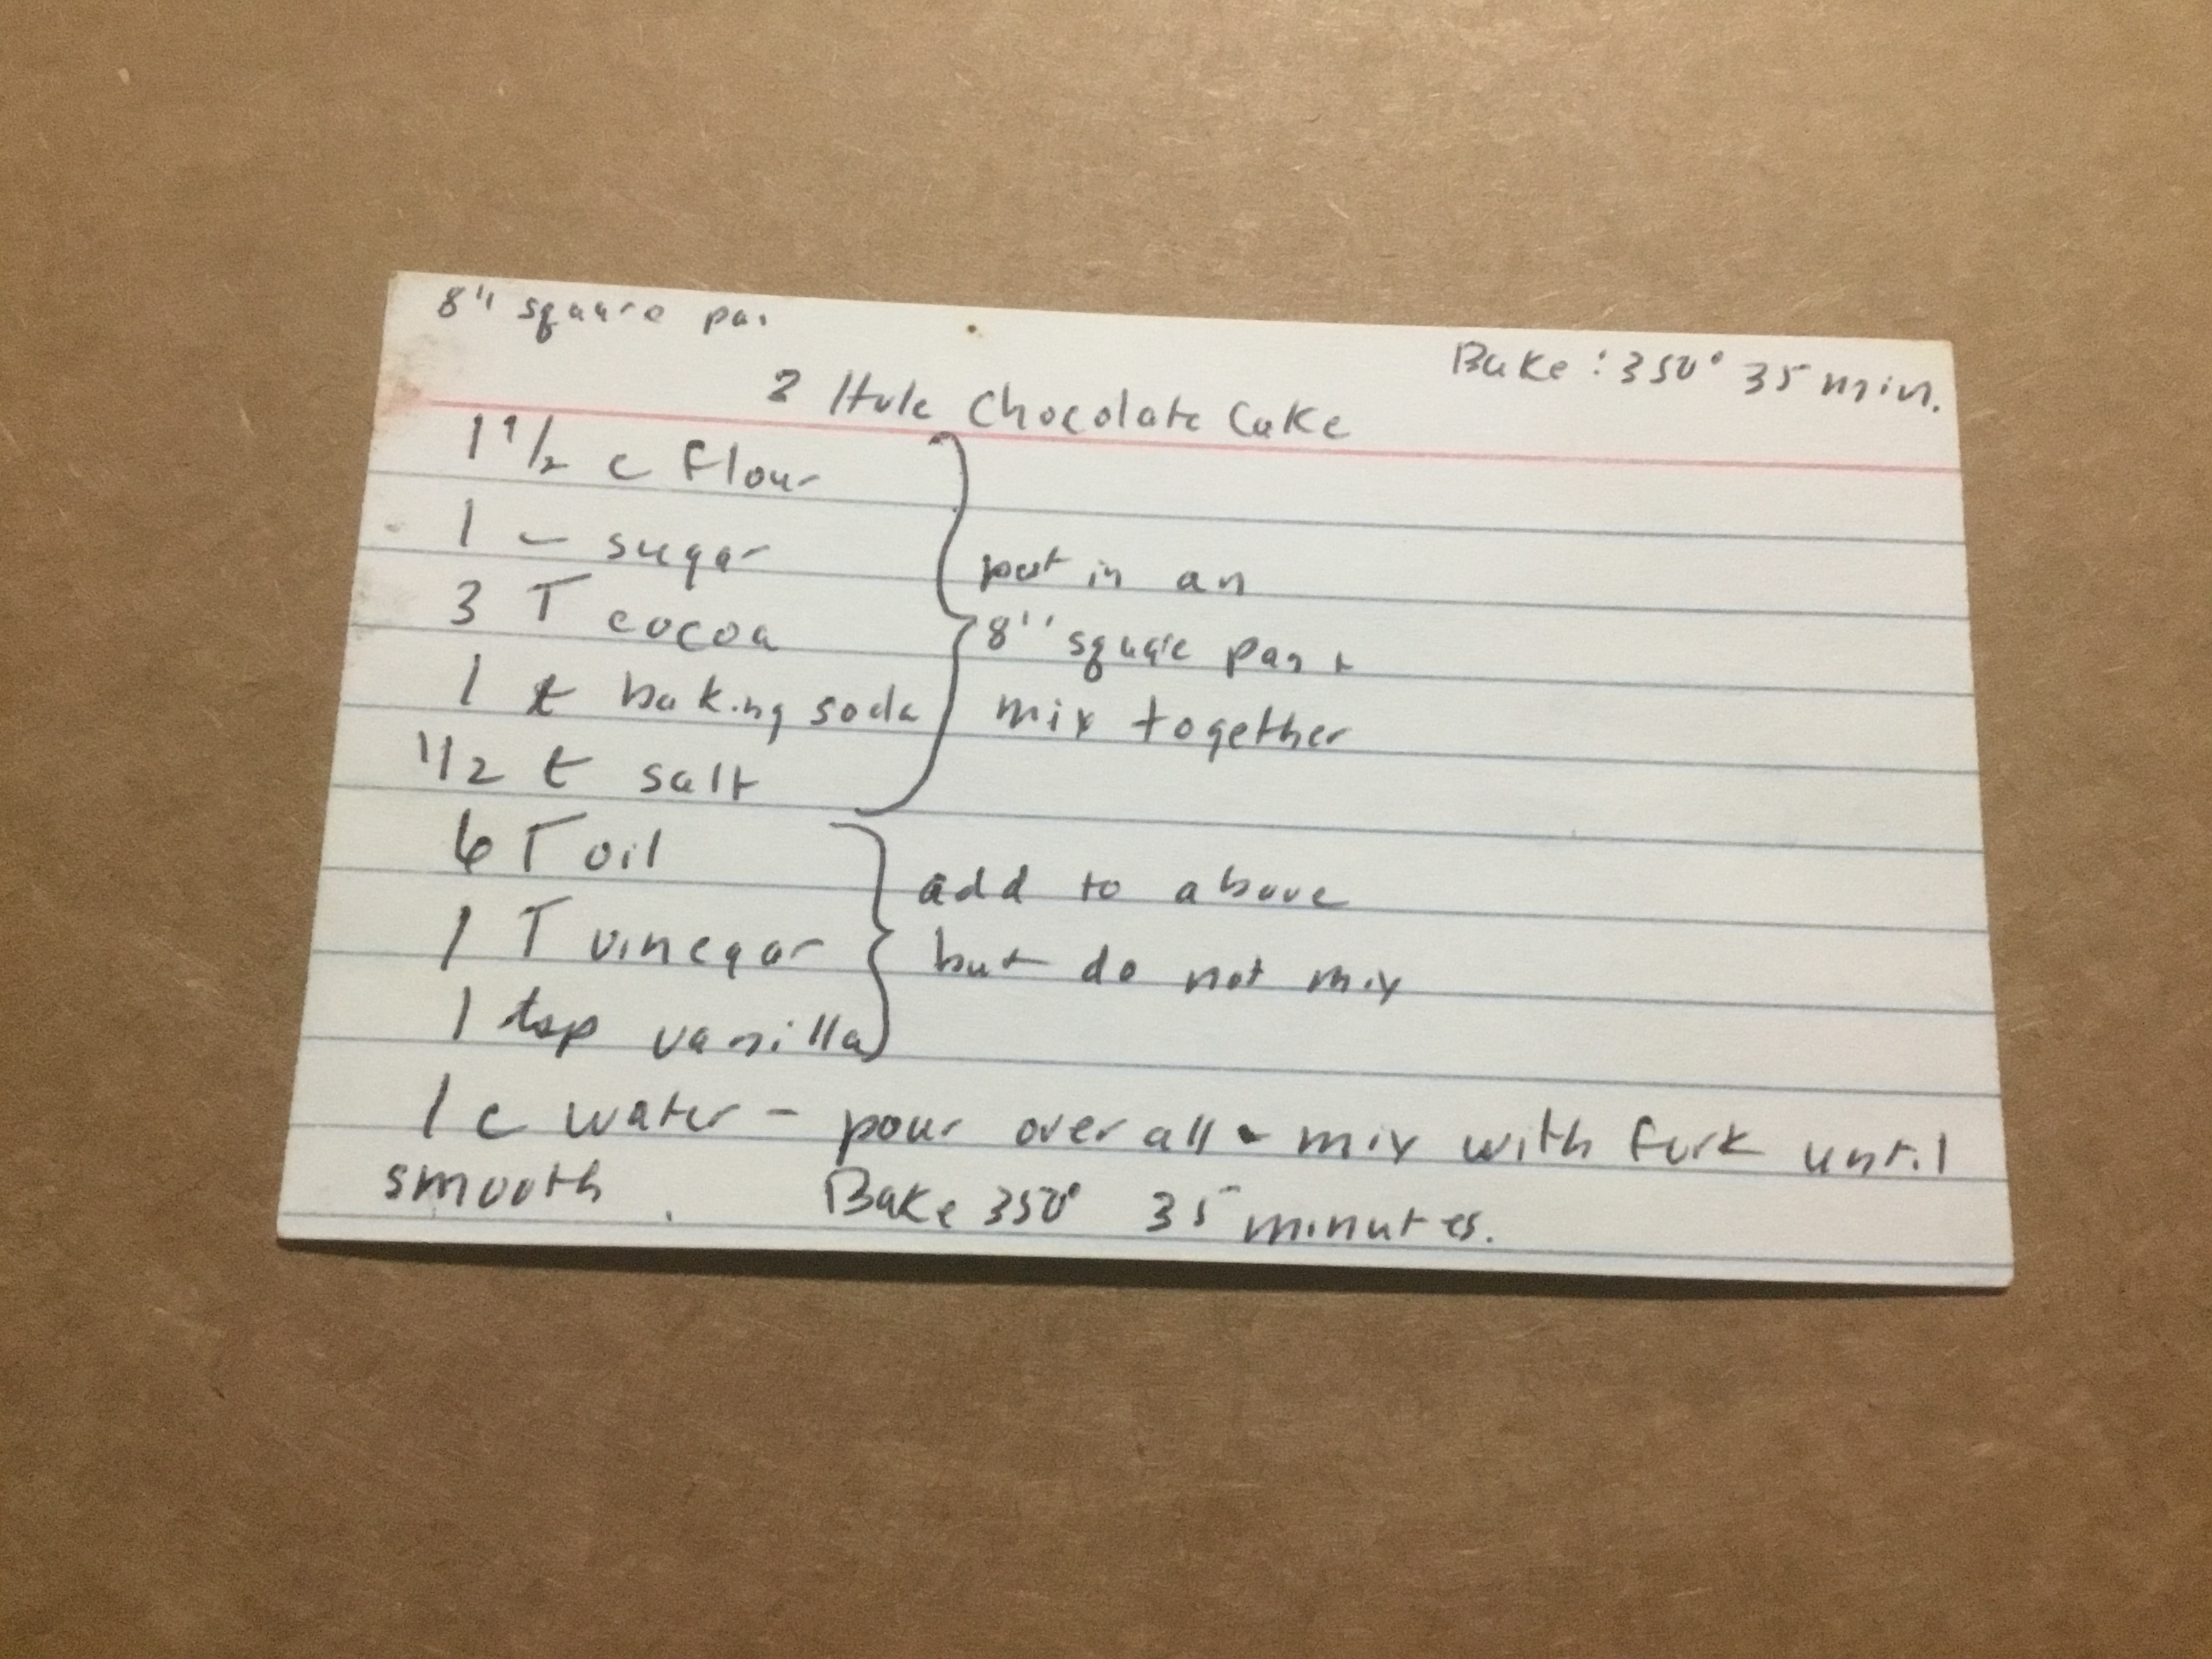 8" square pan
Bake: 350° 35 min.
3 Hole Chocolate Cake
1 1/2 c flour
1 c sugar
3 T cocoa
1 t baking soda
1/2 t salt
put in an
8" square pan +
mix together
6 T oil
1 T vinegar
1 tsp vanilla
add to above
but do not mix
1 c water - pour over all - mix with fork until
smooth. Bake 350° 35 minutes.